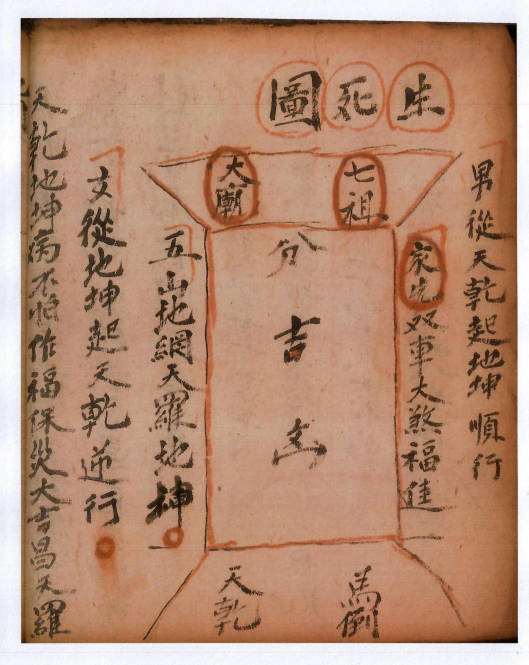 生死圖
男從天乾起地坤順行
家先双車大煞福佳
七祖
大廟
分吉凶
馬倒
天乾
五山地網天羅地神
女從地坤起天乾逆行
天乾地坤病不怕作福保災大吉昌天羅